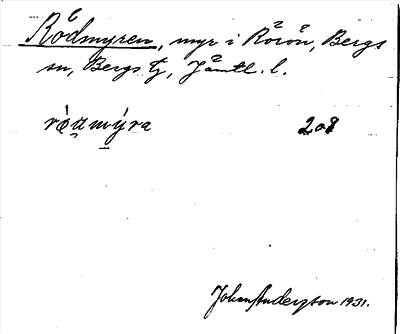 Rödmyren, myr i Rörön, Bergs
sn, Bergs tg, Jämtl. l.
208
Johan Anderzson 1931.